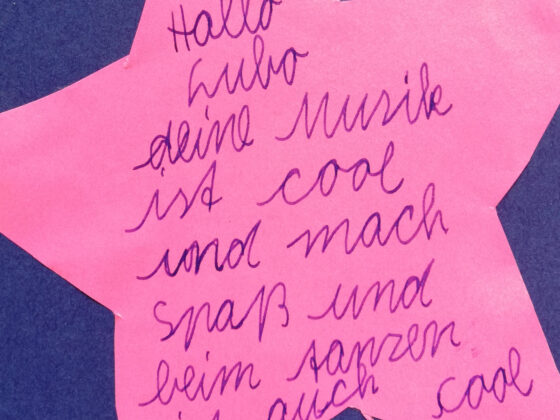 Hallo
Lubo
deine Musik
ist cool
und mach
Spaß und
beim tanzen
ist auch cool